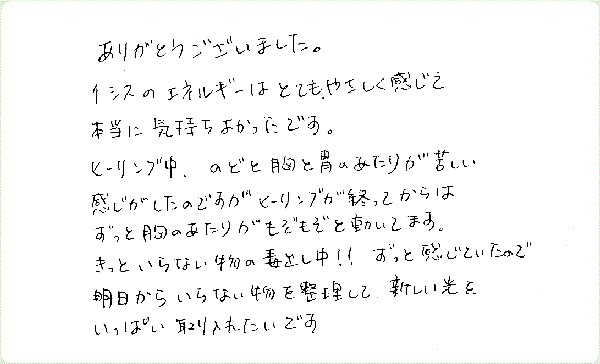 ありがとうございました。
イシスのエネルギーはとてもやさしく感じて
本当に気持ちよかったです。
ヒーリング中、のどと胸と胃のあたりが苦しい
感じがしたのですがヒーリングが終ってからは
ずっと胸のあたりがもぞもぞと動いてます。
きっといらない物の毒出し中!! ずっと感じていたので
明日からいらない物を整理して、新しい光を
いっぱい取り入れたいです